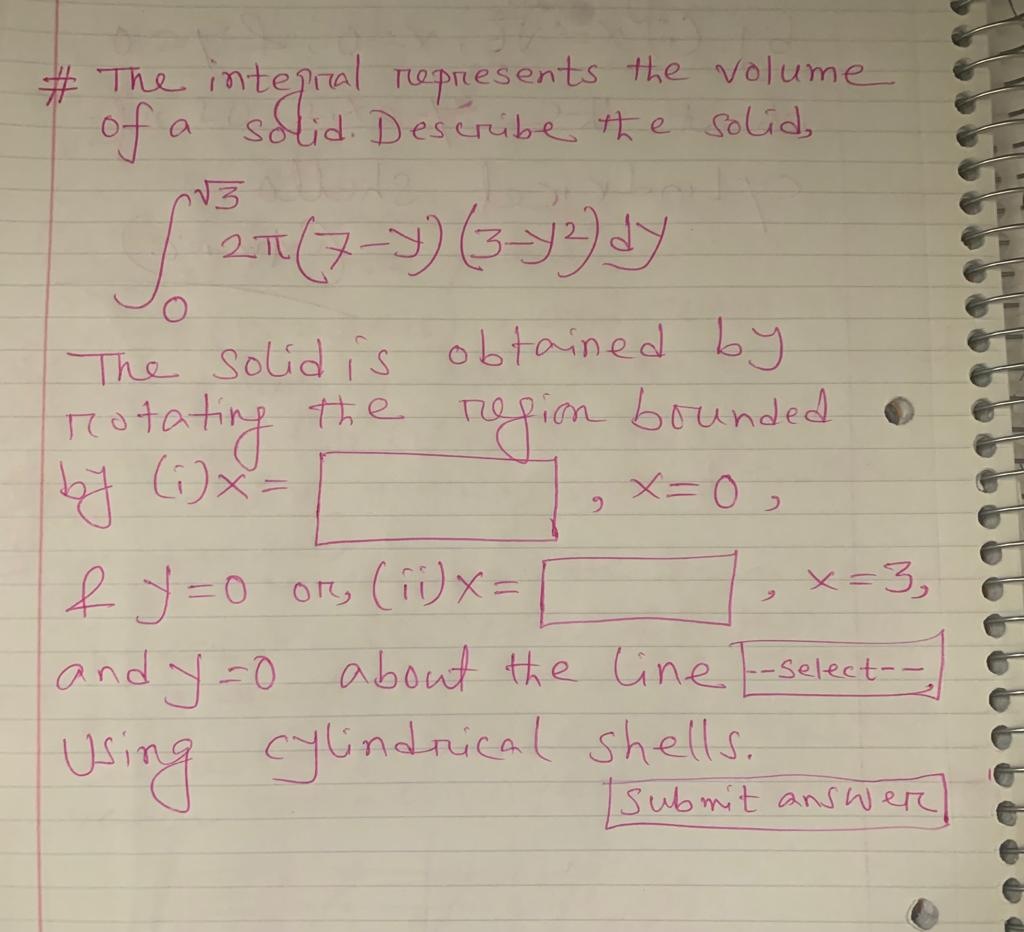 # The integral represents the volume
of a solid. Describe the solid.
∫₀^√3 2π(7-y)(3-y²)dy
The solid is obtained by
rotating the region bounded
by (i) x = , x=0,
& y=0 or, (ii) x= , x=3,
and y=0 about the line --select--
Using cylindrical shells.
Submit answer